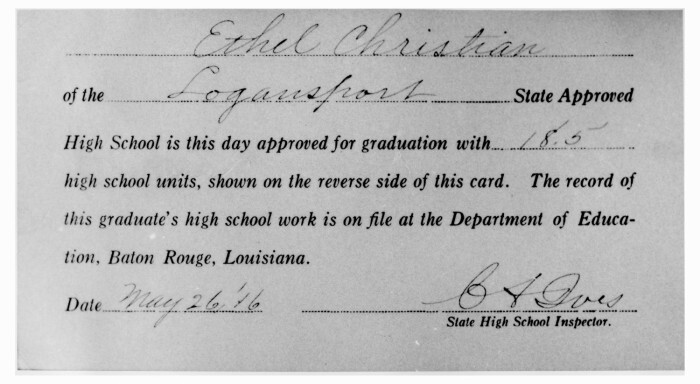 Ethel Christian
of the Logansport State Approved
High School is this day approved for graduation with 18.5
high school units, shown on the reverse side of this card. The record of
this graduate's high school work is on file at the Department of Educa-
tion, Baton Rouge, Louisiana.
Date May 26 '16 C A Ives
State High School Inspector.